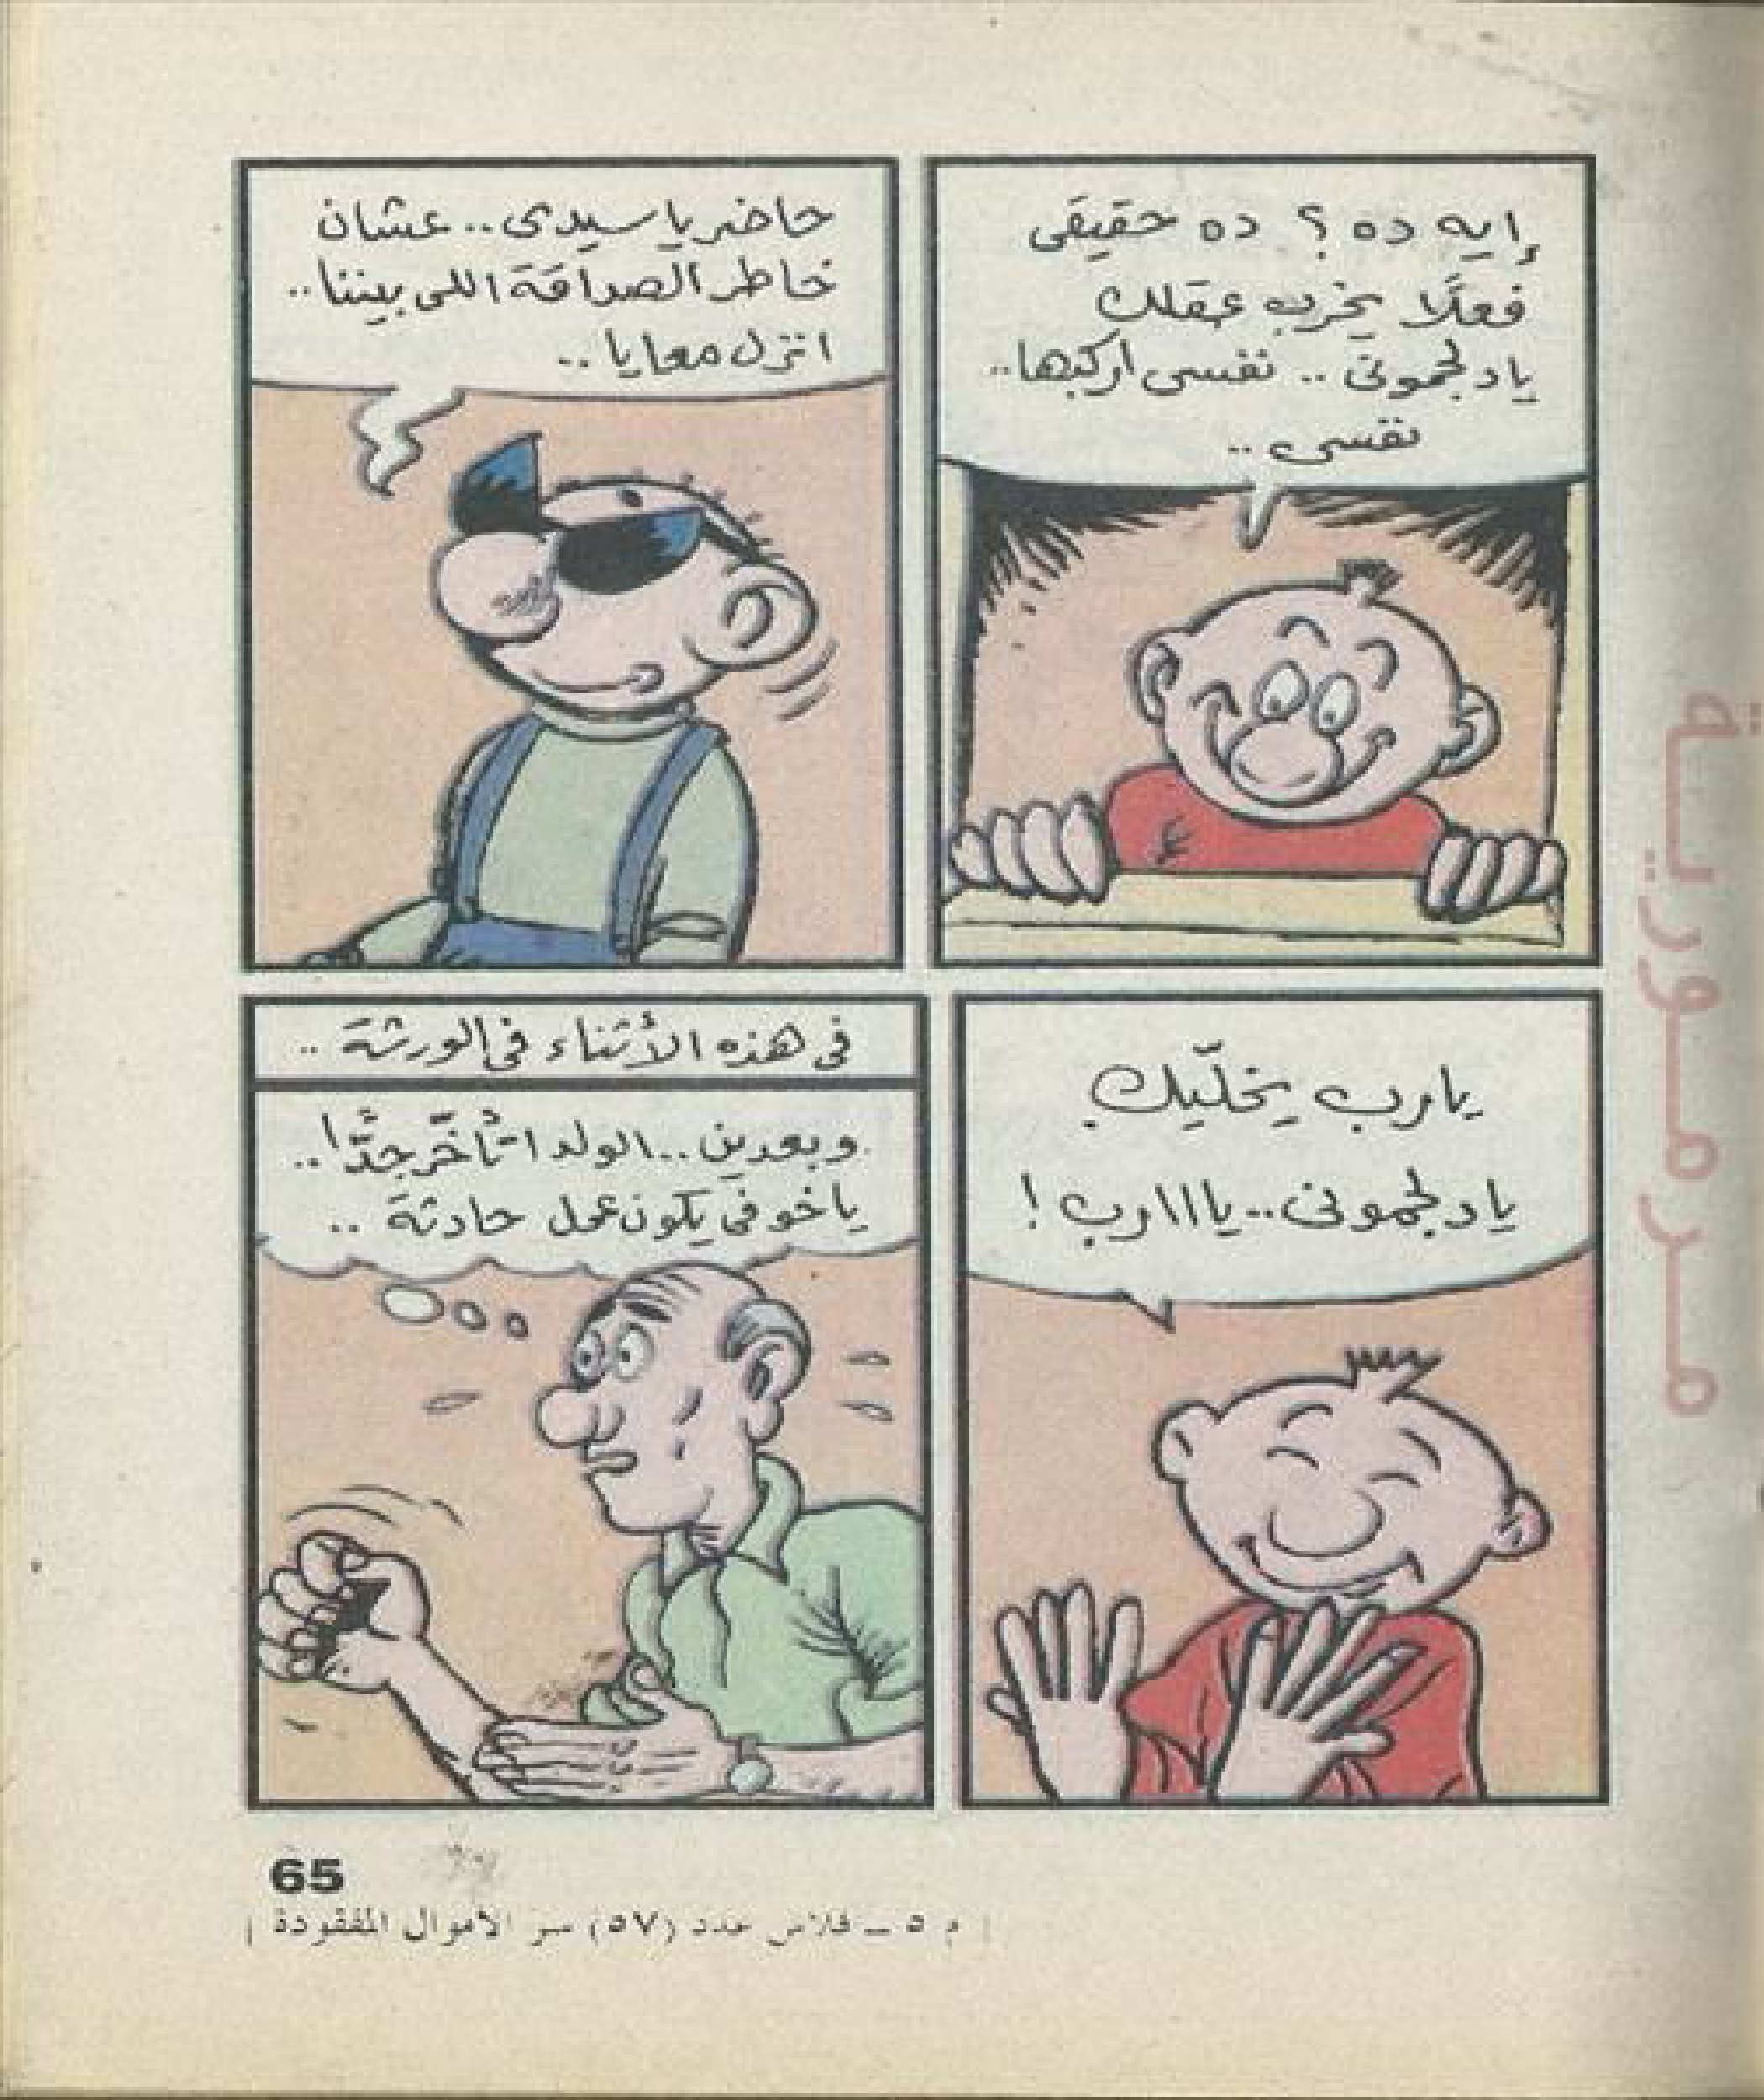 إيه ده؟ ده حقيقى
فعلًا يخرب عقلك
يا دلجمونى .. نفسى اركبها..
نفسى ..
حاضر يا سيدى .. عشان
خاطر الصداقة اللى بيننا ..
انزل معايا ..
يارب يخلّيك
يا دلجمونى .. يااارب !
فى هذه الأثناء فى الورشة ..
وبعدين .. الولد اتأخّر جدًّا ..
ياخوفى يكون عمل حادثة ..
65
م ٥ ــ فلاش عدد (٥٧) سر الأموال المفقودة
مرمورية